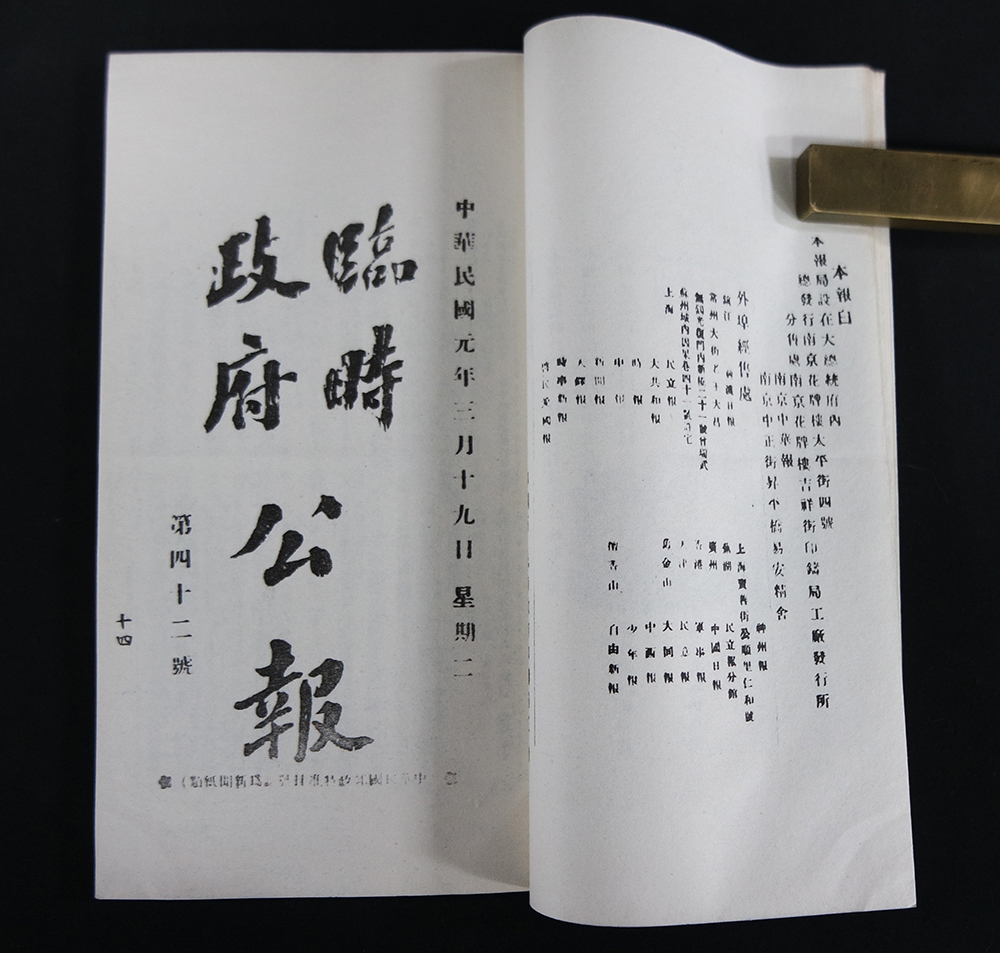 本報白
本報局設在大總統府內
總發行南京花牌樓太平街四號
分售處南京花牌樓吉祥街印鑄局工廠發行所
南京中華報
南京中正街昇平橋易安精舍
外埠經售處
鎮江
常州大街
無錫光復門內新街二十一號
蘇州城內
上海
民立報
大共和報
時報
申報
新聞報
天鐸報
時事新報
神州報
上海寶善街公順里仁和號
蕪湖 民立報分館
廣州 中國日報
香港 軍事報
天津 民立報
舊金山 大同報
中西報
少年報
檀香山 自由新報
中華民國元年三月十九日星期二
臨時
政府
公報
第四十二號
十四